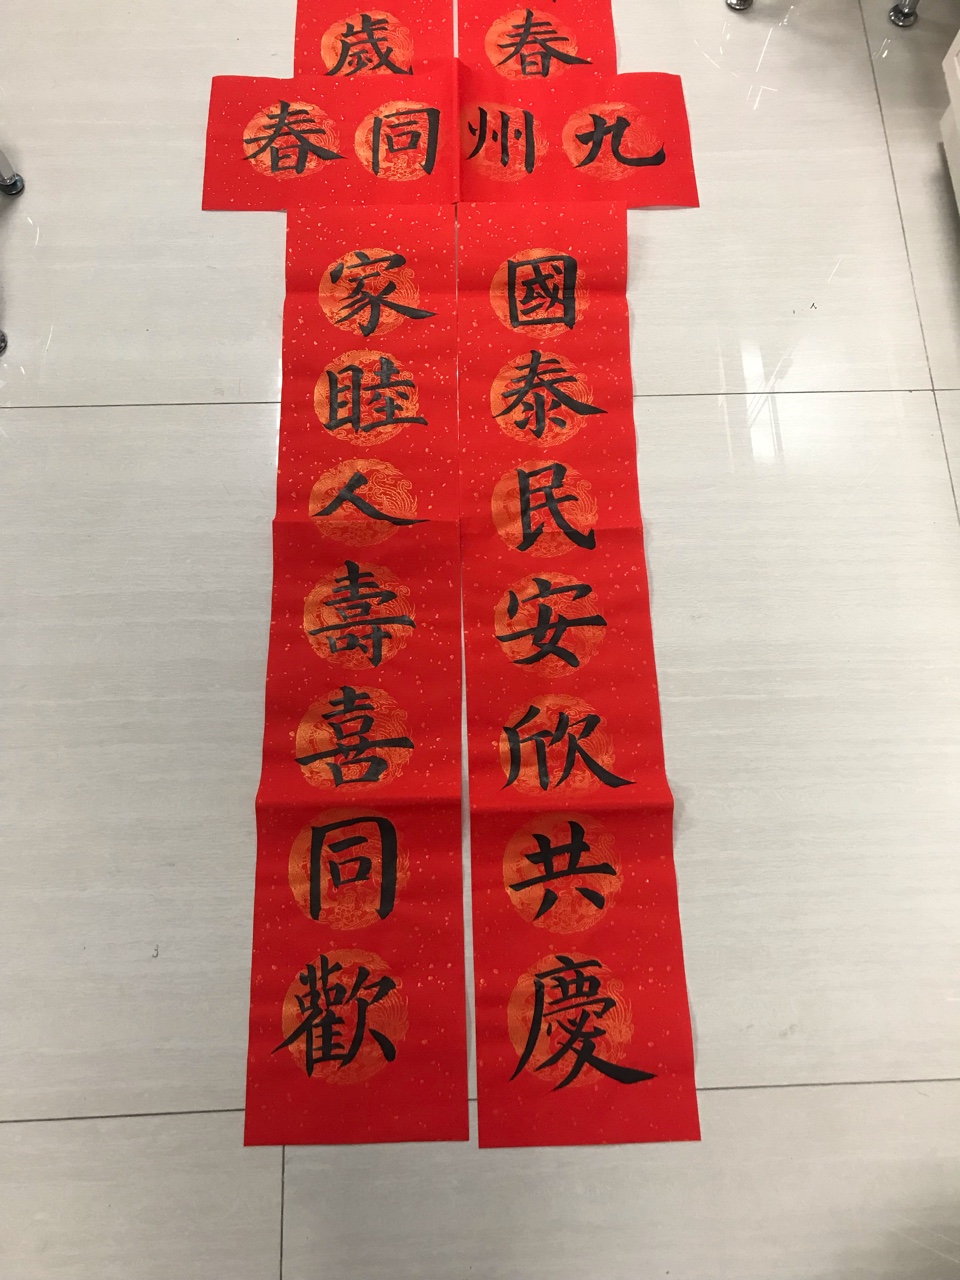 春
歲
九州同春
國泰民安欣共慶
家睦人壽喜同歡